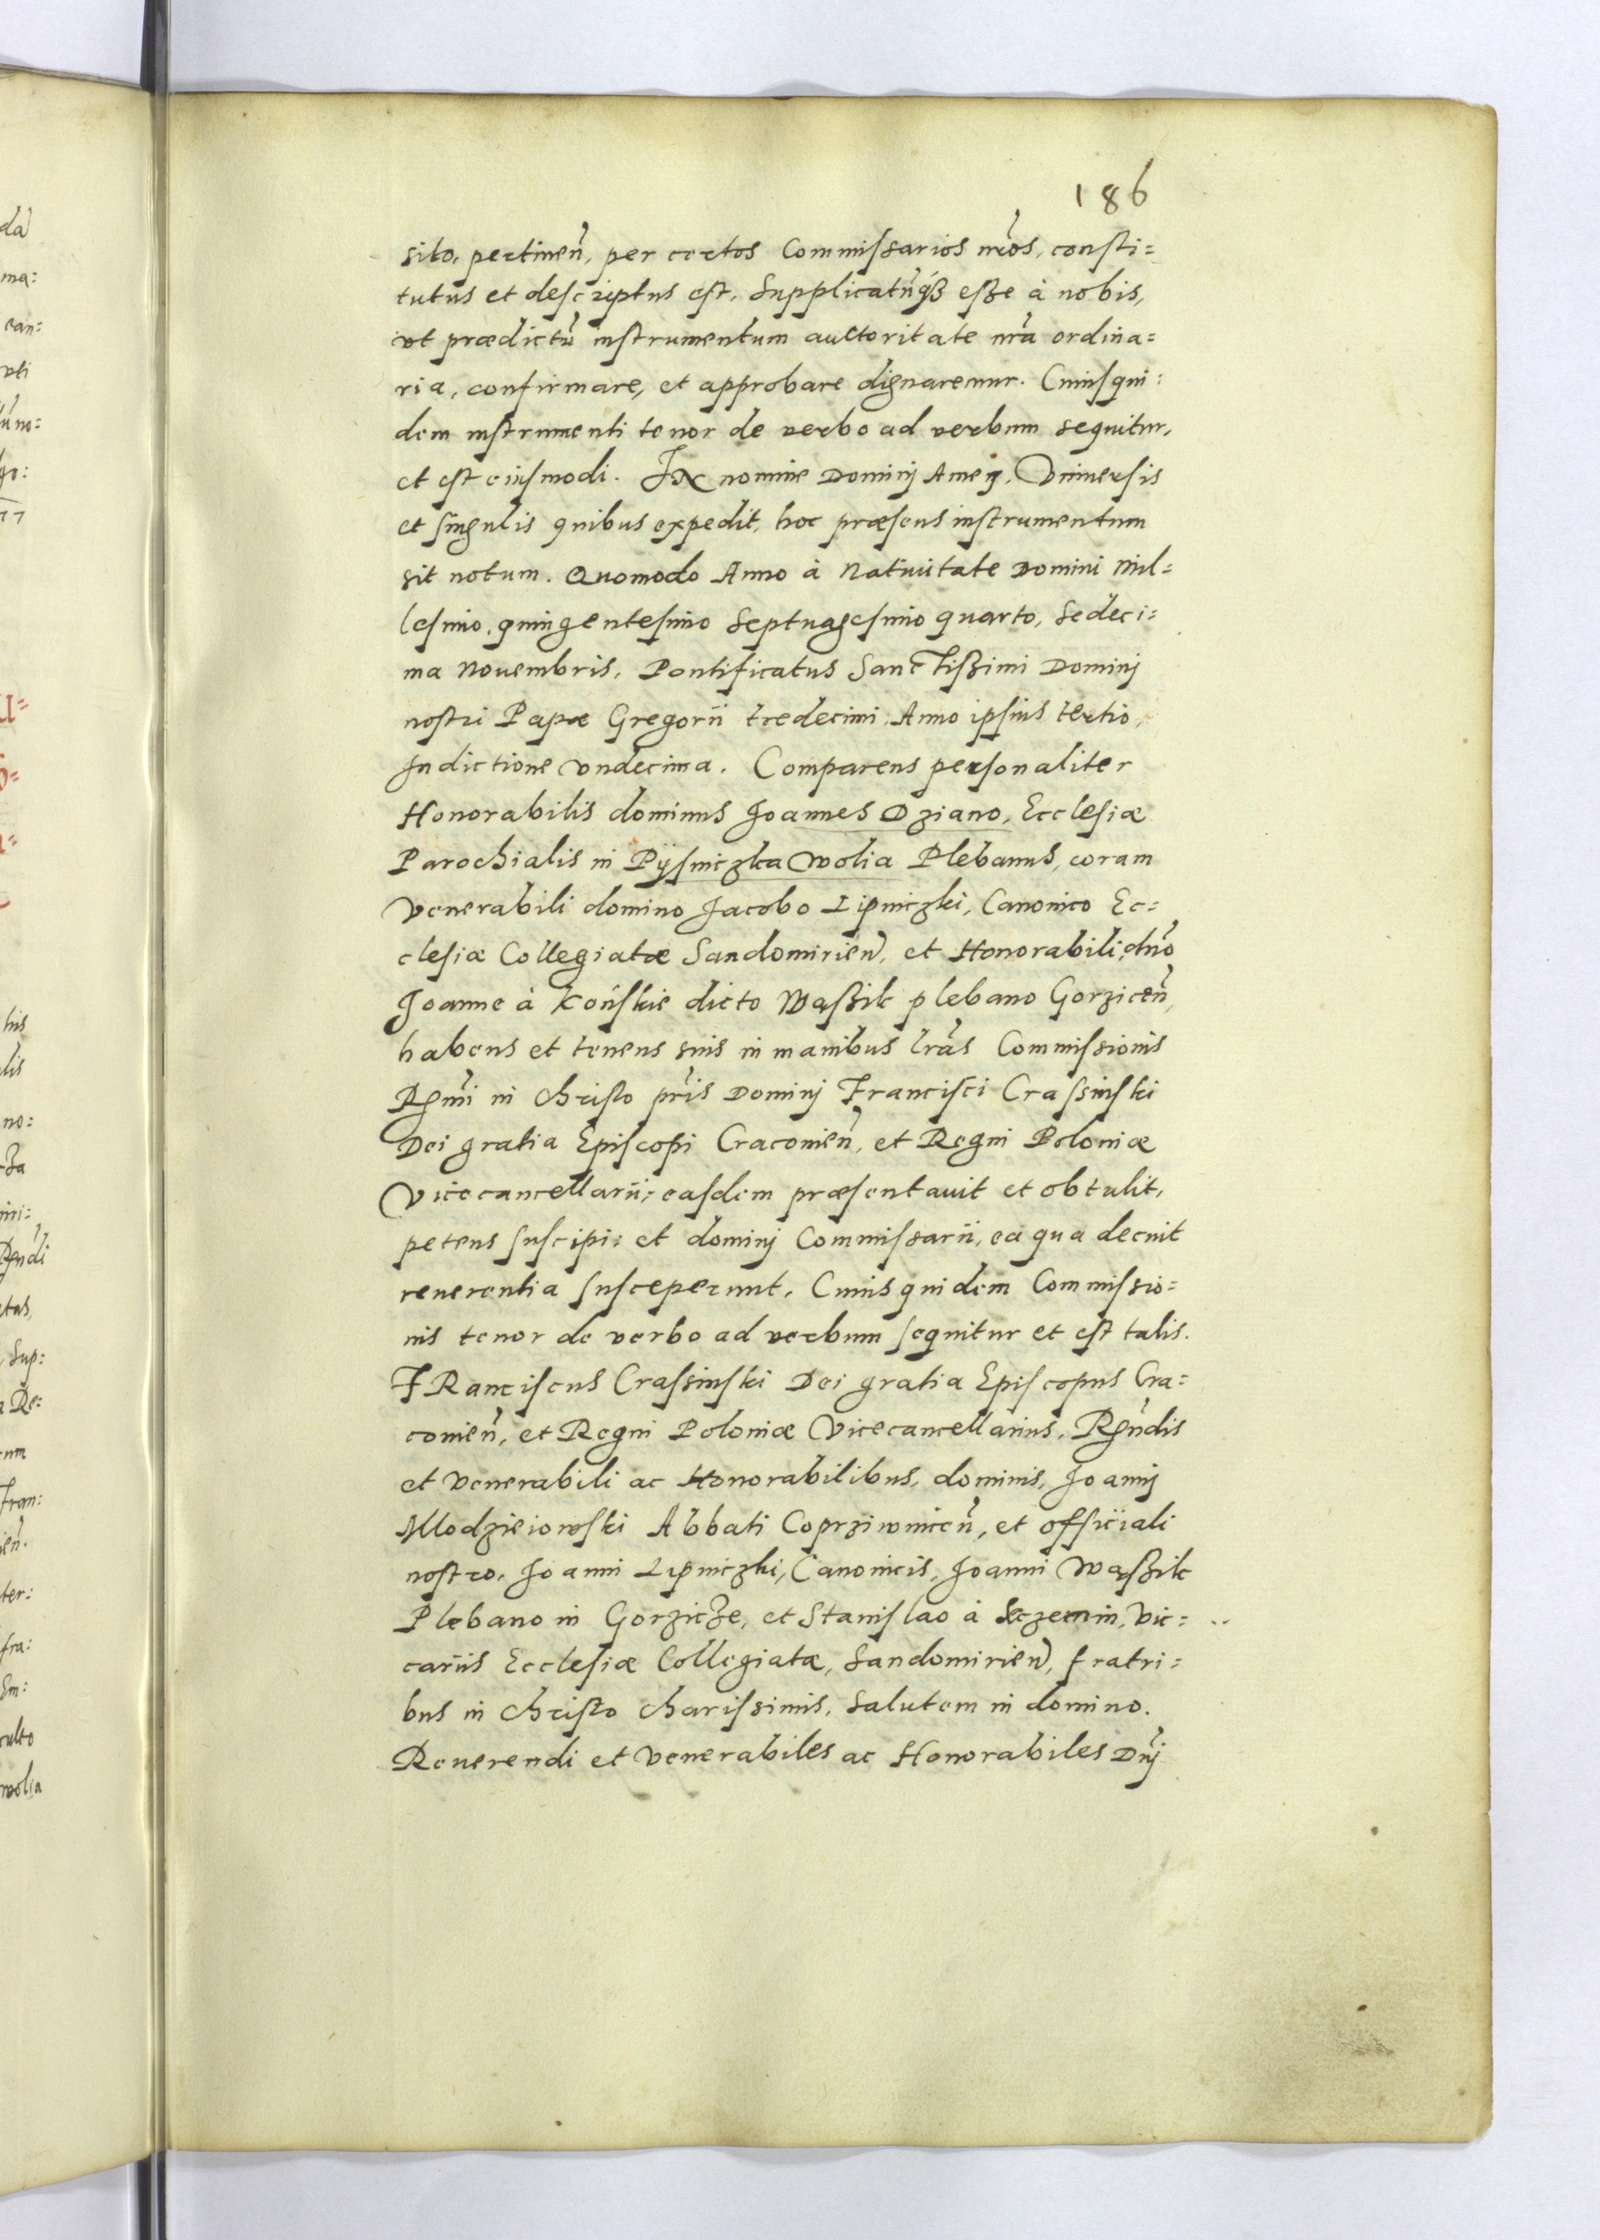 186
sito, pertineñ, per certos Commissarios nr̃os, consti=
tutus et descriptus est, Supplicatũq́ꝫ esse à nobis,
vt prædictũ instrumentum auctoritate nr̃a ordina=
ria, confirmare, et approbare dignaremur. Cuiusqui=
dem instrumenti tenor de verbo ad verbum sequitur,
et est eiusmodi. IN nomine Dominj Amen, Vniuersis
et singulis quibus expedit, hoc præsens instrumentum
sit notum. Quomodo Anno à Natiuitate Domini Mil=
lesimo, quingentesimo Septuagesimo quarto, Sedeci=
ma Nouembris, Pontificatus Sanctissimi Dominj
nostri Papæ Gregorii tredecimi, Anno ipsius tertio,
Indictione vndecima. Comparens personaliter
Honorabilis dominus Joannes Dziano, Ecclesiæ
Parochialis in Pÿsniczka Wolia Plebanus, coram
Venerabili domino Jacobo Lipniczki, Canonico Ec=
clesiæ Collegiatæ Sandomirieñ, et Honorabili, dño
Joanne à Końskie dicto Wąssik plebano Gorziceñ,
habens et tenens suis in manibus lr̃as Commissionis
Rgmi in Christo pr̃is Dominj Francisci Crassinski
Dei gratia Episcopi Cracouieñ, et Regni Poloniæ
Vicecancellarii, easdem præsentauit et obtulit,
petens suscipi: et dominj Commissarii, ea qua decuit
reuerentia susceperunt, Cuius quidem Commissio=
nis tenor de verbo ad verbum sequitur et est talis.
FRanciscus Crassinski Dei gratia Episcopus Cra=
couieñ, et Regni Poloniæ Vicecancellarius, Rñdis
et Venerabili ac Honorabilibus, dominis, Joannj
Mlodzieiowski Abbati Coprziwniceñ, et officiali
nostro, Joanni Lipniczki, Canonicis, Joanni Wąssik
Plebano in Gorzicze, et Stanislao à Sczemin, Vic=
cariis Ecclesiæ Collegiatæ, Sandomirieñ, fratri=
bus in Christo charissimis, Salutem in domino.
Reuerendi et Venerabiles ac Honorabiles Dñj